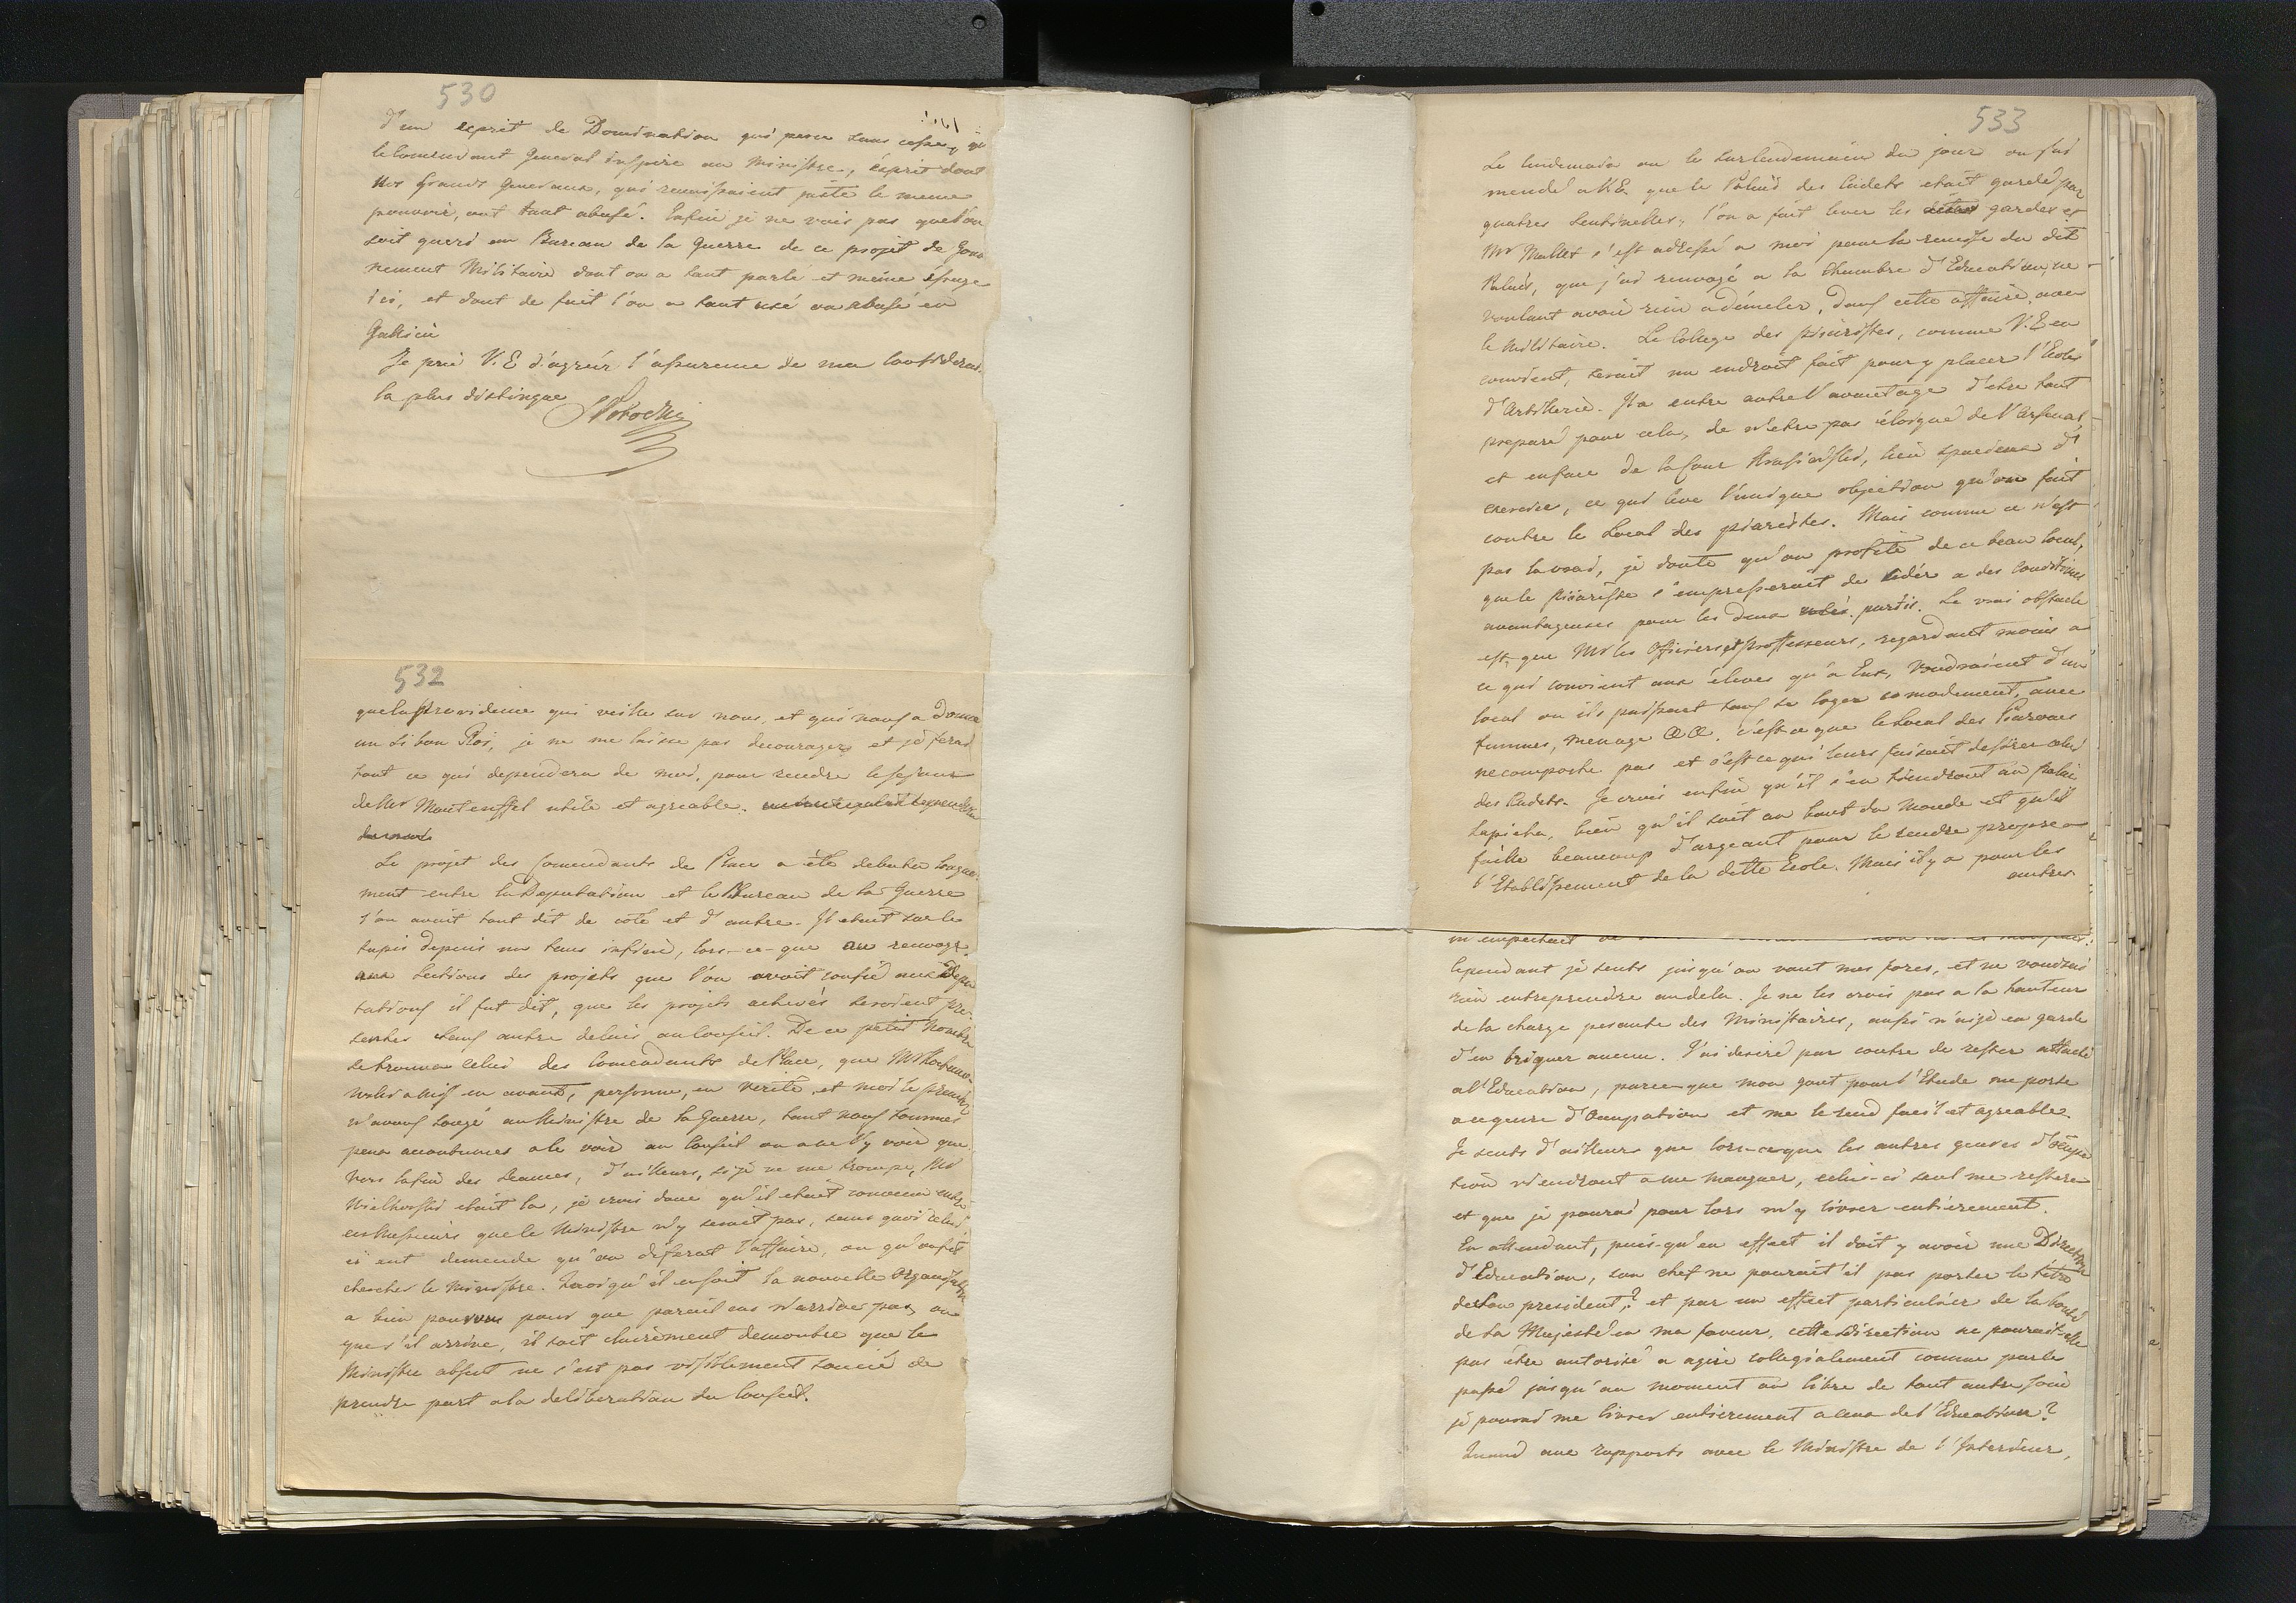 530
d'un esprit de Domination qui perce sans cesse, que
le Comendant General inspire au Ministre, esprit dont
Nos Grands Generaux, qui reunissaient juste le meme
pouvoir, ont tant abusé. Enfin je ne vois pas que l'on
soit gueri au Bureau de la Guerre de ce projet de Gouver
nement Militaire dont on a tant parlé et même
ici, et dont de fait l'on a tant usé ou abusé en
Gallicie
Je prie V. E d'agréer l'assurence de ma Considerat.
la plus distingue
SPotocki
532
que la Providence qui veille sur nous, et qui nous a Donné
un si bon Roi, je ne me laisse pas decourager, et je ferai
tout ce qui dependera de moi, pour rendre le sejour
de Mr Manteuffel utile et agreable.
Le projet des Comendants de Place a été debatu longue-
ment entre la Deputation et le Bureau de la Guerre
l'on avait tout dit de coté et d'autre. Il etait sur le
tapis depuis un tems infini, lors-ce-que au renvoye
aux Sections des projets que l'on avoit confié aux Depu
tations il fut dit, que les projets achevés seroient pre-
sentes sans autre delais au Conseil. De ce petit Nombre
se trouva celui des Comendants de Place, que Mr
mis en avant, personne, en verité, et moi le premier
n'avons songé au Ministre de la Guerre, tant nous sommes
peux acoutumes a le voir au Conseil ou a ne l'y voir que
vers la fin des Seances, d'ailleurs, si je ne me trompe, Mr
Wielhorski etait la, je crois donc qu'il etait convenu entre
ces Messieurs que le Ministre n'y seroit pas, sans quoi celui
ci eut demende qu'on diferat l'affaire, ou qu'on fit
chercher le Ministre. Quoiqu'il en soit la nouvelle Organisation
a bien pourvu pour que pareil cas n'arrive pas, ou
que s'il arrive, il soit clairement demontre que le
Ministre absent ne s'est pas visiblement soucié de
prendre part a la deliberation du Conseil.
533
Le lendemain ou le surlendemain du jour ou j'ai
mendé a V.E. que le Palais des Cadets etait gardé par
quatres Sentinelles, l'on a fait lever les gardes et
Mr Mallet s'est adressé a moi pour la remise du dit
Palais, que j'ai renvoyé a la Chambre d'Education, ne
voulant avoir rien a demeler, dans cette affaire, avec
le Militaire. Le College des piaristes, comme V.E en
convient, serait un endroit fait pour y placer l'Ecole
d'Artillerie. Il a entre autre l'avantage d'etre tout
preparé pour cela, de n'etre pas éloigné de l'Arsenal
et en face de la Cour Krasinski, lieu spacieux d'
exercice, ce qui leve l'unique objection qu'on fait
contre le Local des piaristes. Mais comme ce n'est
pas la vrai, je doute qu'on profite de ce beau local,
que le Piariste s'empresserait de céder a des Conditions
avantageuses pour les deux partis. Le vrai obstacle
est, que Mrs les Officiers et professeurs, regardant moins a
ce qui convient aux éleves qu'a Eux, voudraient d'un
local ou ils puissent tous se loger comodement, avec
femmes, menage &&. c'est ce que le Local des Piaristes
ne comporte pas et c'est ce qui leurs faisait desirer celui
des Cadets. Je crois enfin qu'il s'en tiendront au palai
Sapieha, bien qu'il soit au bout du Monde et qu'il
faille beaucoup d'argeant pour le rendre propre a
l'Etablissement de la dette Ecole. Mais il y a pour les
autres
Cependant je sents jusqu'ou vont mes forces, et ne voudrais
rien entreprendre audela. Je ne les crois pas a la hauteur
de la charge pesante des Ministaires, aussi n'ai-je en garde
d'en briguer aucun. J'ai desiré par contre de rester attaché
a l'Education, parce-que mon gout pour l'Etude me porte
a ce genre d'Ocupation et me le rend facil et agreable.
Je sents d'ailleurs que lors-ce-que les autres genres d'ocupa
tion viendront a me manquer, celui-ci seul me restera
et que je pourai pour lors m'y livrer entierement.
En attendant, puis-qu'en effect il doit y avoir une Direction
d'Education, son chef ne pourait il pas porter le titre
de Son president? et par un effect particulier de la bonté
de Sa Majesté en ma faveur, cette direction ne pourait-elle
pas être autorisé a agire collegialement comme par le
passé jusqu'au moment ou libre de tout autre soin
je pourai me livrer entierement a ceux de l'Education?
Quand aux rapports avec le Ministre de l'Interieur,